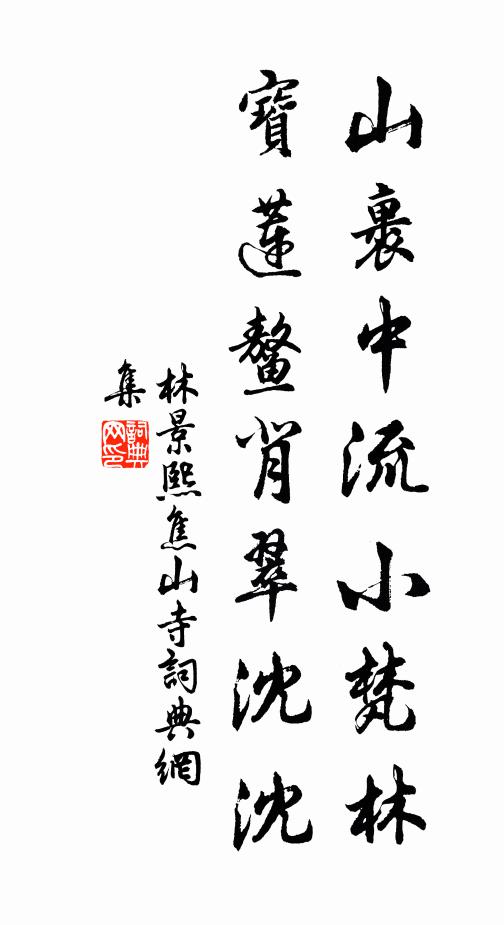 山裹中流小梵林
寶蓮鼇背翠沈沈
林景熙焦山寺詞典網
集
詞典网印